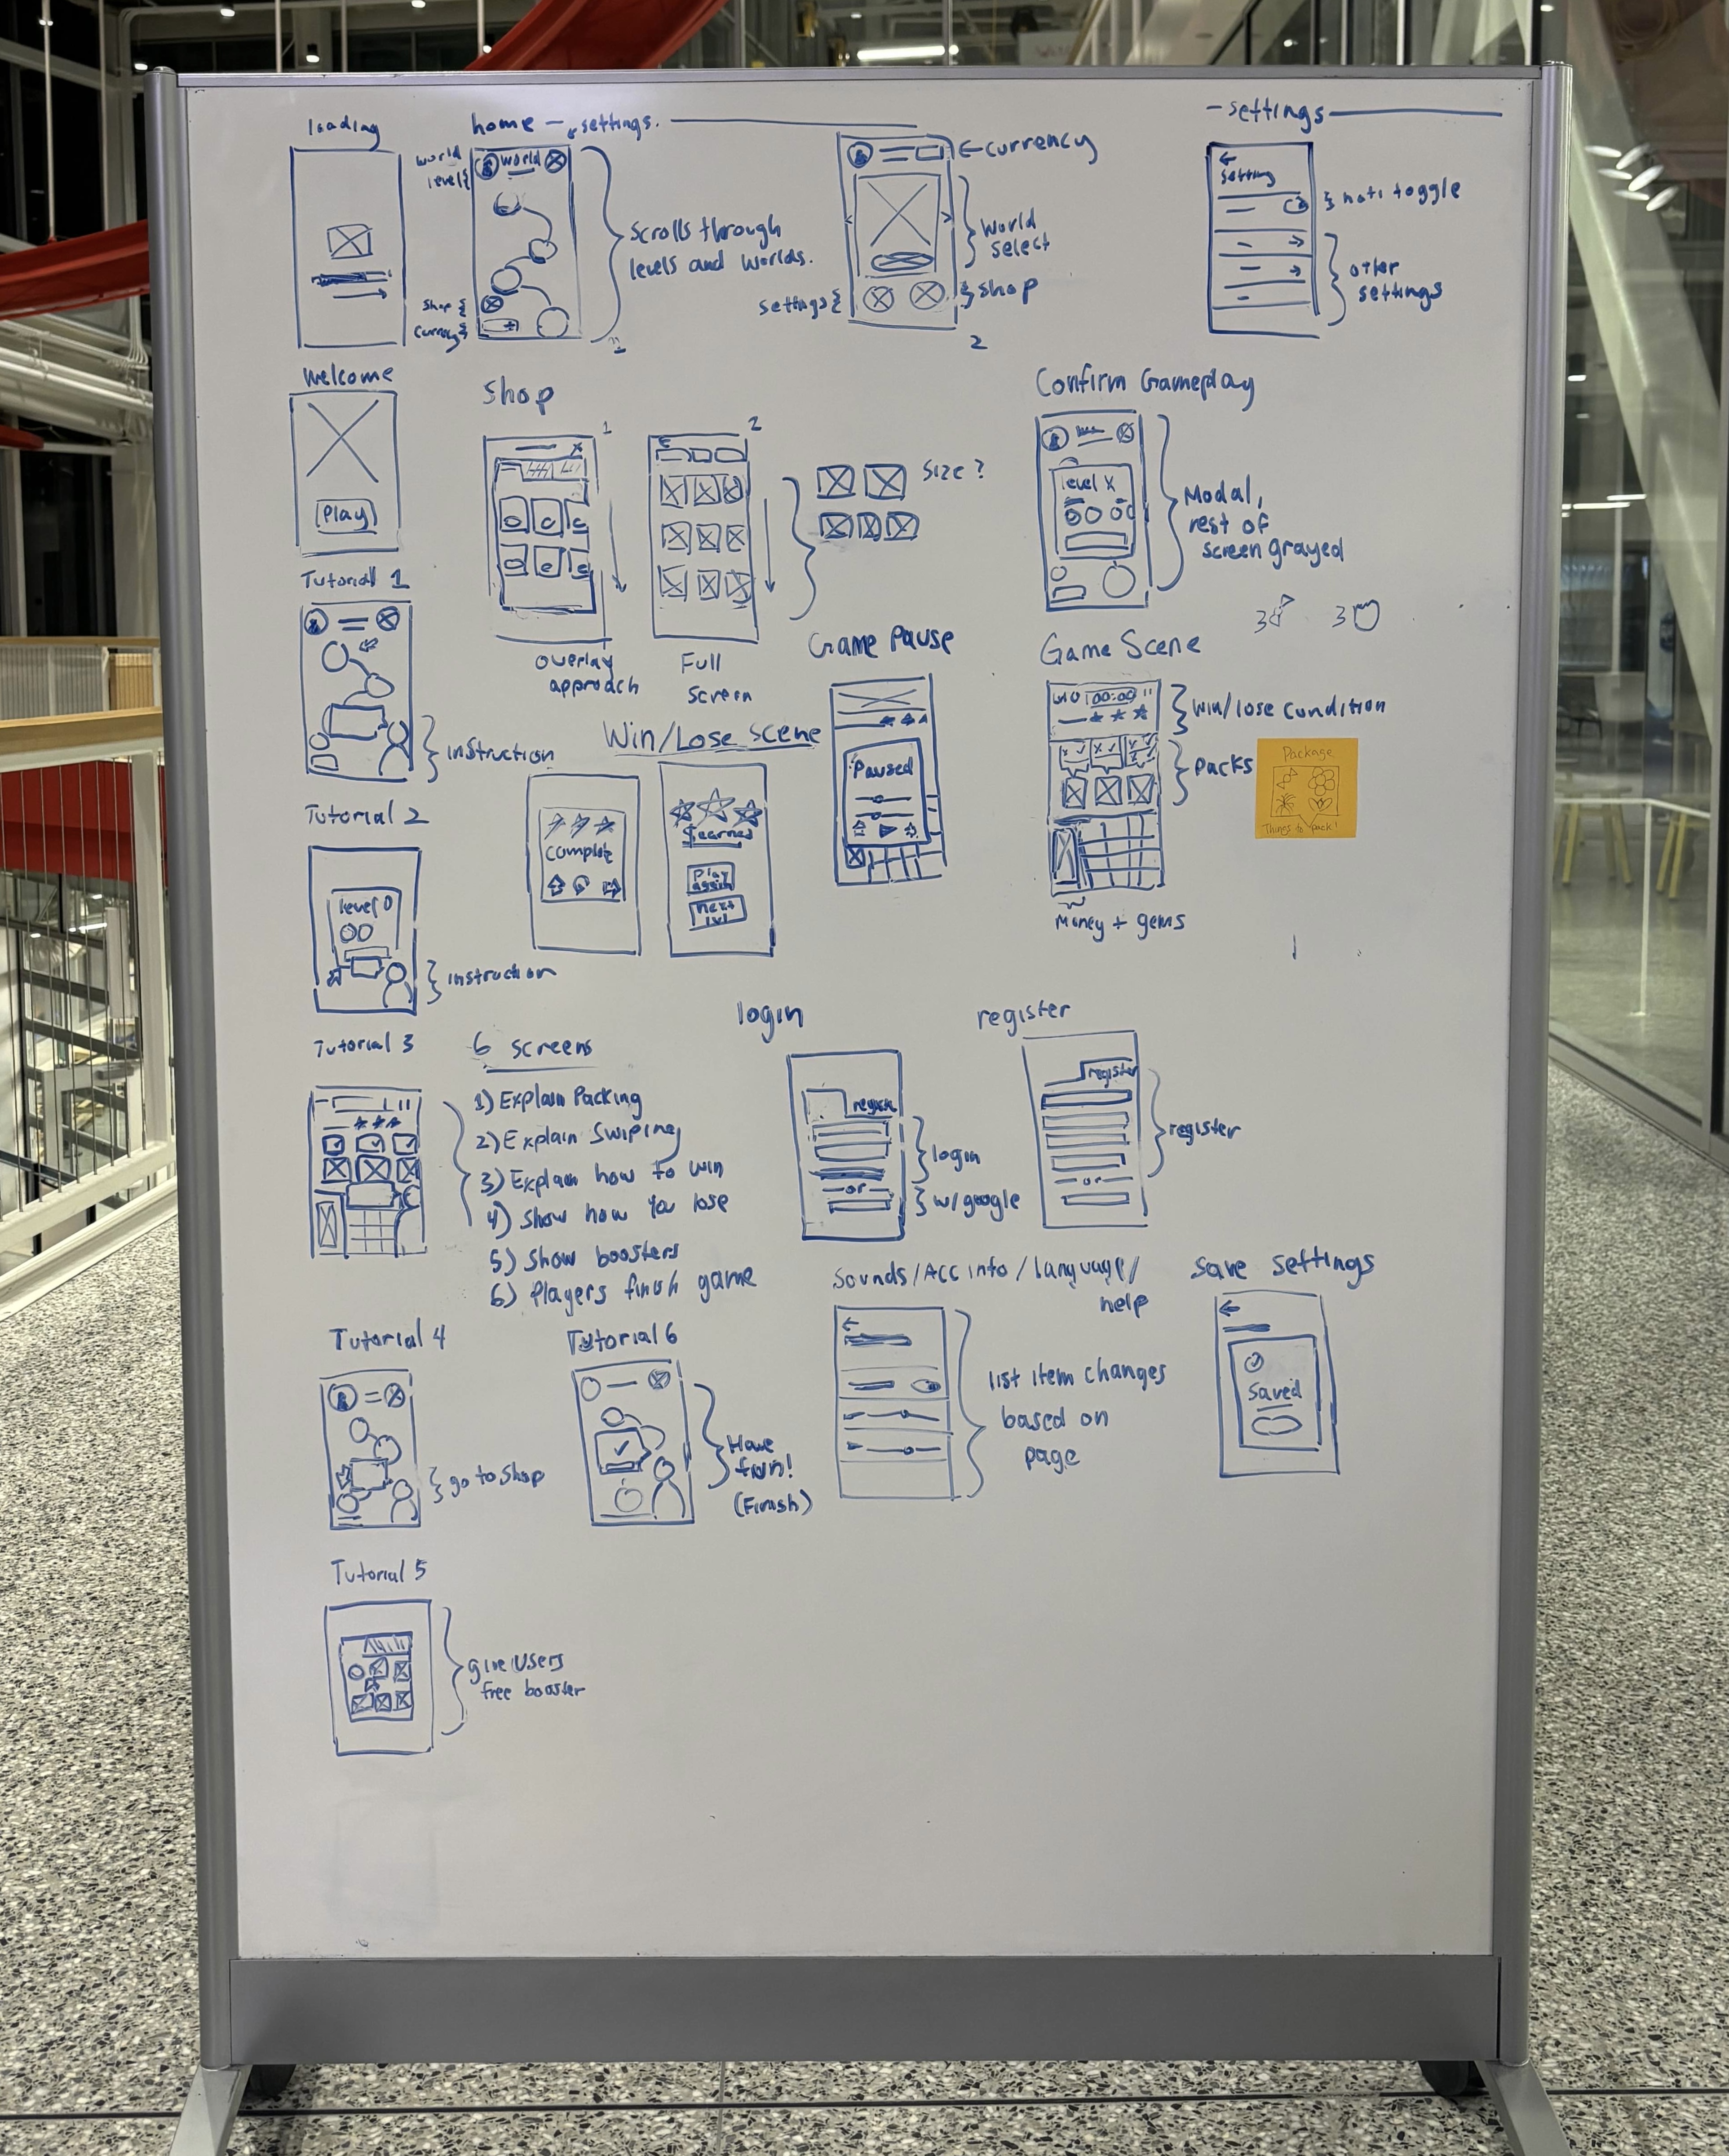 loading
home – settings.
world
level
world
Scrolls through
levels and worlds.
shop
currency
1
← currency
World
select
settings
shop
2
– settings
←
setting
noti toggle
other
settings
welcome
Play
Shop
1
2
Size?
overlay
approach
Full
screen
Confirm Gameplay
level X
Modal,
rest of
screen grayed
3
3
Tutorial 1
instruction
Game Pause
Paused
Game Scene
00:00 11
win/lose condition
packs
Money + gems
Package
Things to pack!
Win/Lose Scene
Complete
earned
Play
again
next
lvl
Tutorial 2
level 0
instruction
Tutorial 3
6 screens
1) Explain Packing
2) Explain Swiping
3) Explain how to win
4) Show how you lose
5) Show boosters
6) Players finish game
login
login
or
w/google
register
register
or
register
Tutorial 4
go to shop
Tutorial 6
Have
fun!
(Finish)
Sounds/Acc info/language/
help
list item changes
based on
page
Save settings
Saved
Tutorial 5
give users
free booster